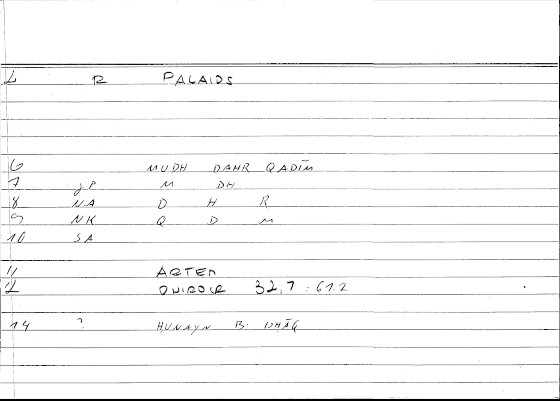 R PALAIOS
6 MUDH DAHR QADĪM
7 JP M DH
8 NA D H R
9 NK Q D M
10 SA
11 ARTEM
12 ONIROCR 32,7 : 61.2
14 ? HUNAYN B. ISHĀQ